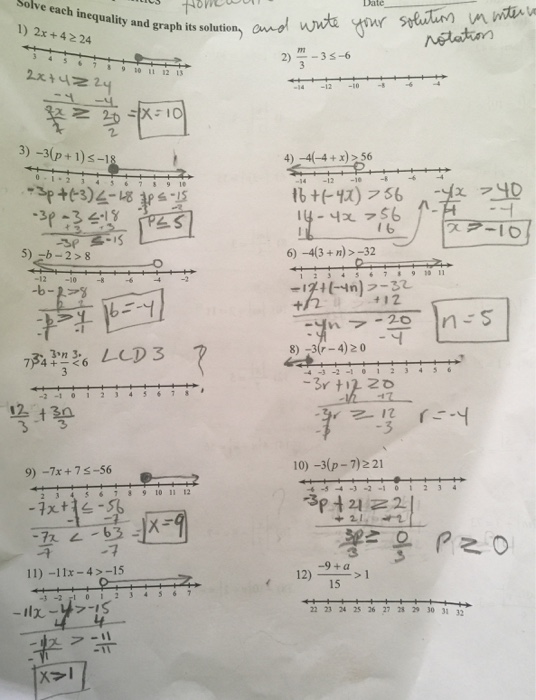 Date
Solve each inequality and graph its solution, and write your solution in
notation
1) 2x + 4 ≥ 24
3 4 5 6 7 8 9 10 11 12 13
2x+4 ≥ 24
-4 -4
2x/2 ≥ 20/2 = x=10
2) m/3 − 3 ≤ −6
−14 −12 −10 −8 −6 −4
3) −3(p + 1) ≤ −18
0 1 2 3 4 5 6 7 8 9 10
-3p+(-3) ≤ -18
-3p - 3 ≤ -18
+3 +3
-3p ≤ -15
p ≤ 5
4) −4(−4 + x) > 56
−14 −12 −10 −8 −6 −4
16+(-4x) > 56
16 - 4x > 56
16 16
-4x > 40
x > -10
5) −b − 2 > 8
−12 −10 −8 −6 −4 −2
-b-2 > 8
b=-4
6) −4(3 + n) > −32
1 2 3 4 5 6 7 8 9 10 11
-12+(-4n) > -32
+12 +12
-4n > -20/-4
n=5
7) 4 + n/3 < 6 LCD 3 ?
−2 −1 0 1 2 3 4 5 6 7 8
12/3 + 3n/3
8) −3(r − 4) ≥ 0
−4 −3 −2 −1 0 1 2 3 4 5 6
-3r+12 ≥ 0
-12 -12
-3r ≥ 12/-3 r=-4
9) −7x + 7 ≤ −56
2 3 4 5 6 7 8 9 10 11 12
-7x+7 ≤ -56
-7 -7
-7x/-7 < -63/-7 = x=9
10) −3(p − 7) ≥ 21
−6 −5 −4 −3 −2 −1 0 1 2 3 4
-3p+21 ≥ 21
+21 +21
3p/3 ≥ 0/3 P ≥ 0
11) −11x − 4 > −15
−3 −2 −1 0 1 2 3 4 5 6 7
-11x - 4 > -15
4 4
-11x/-11 > -11/-11
x>1
12) (−9 + a)/15 > 1
22 23 24 25 26 27 28 29 30 31 32